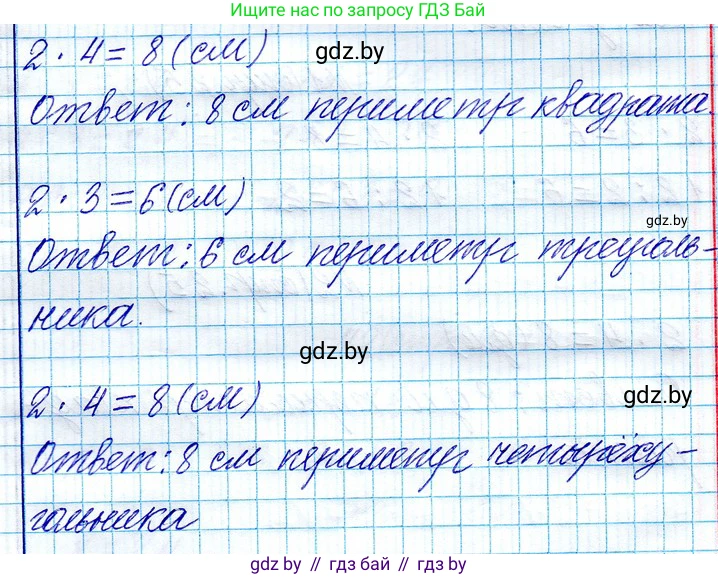 Ищите нас по запросу ГДЗ Бай
2 · 4 = 8 (см)
gdz.by
Ответ: 8 см периметр квадрата.
2 · 3 = 6 (см)
gdz.by
Ответ: 6 см периметр треуголь-
ника.
gdz.by
2 · 4 = 8 (см)
gdz.by
Ответ: 8 см периметр четырёху-
гольника
gdz.by // гдз бай // gdz.by